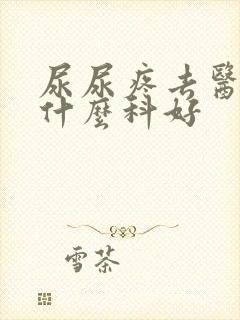 尿尿疼去醫
什麼科好
雪茶